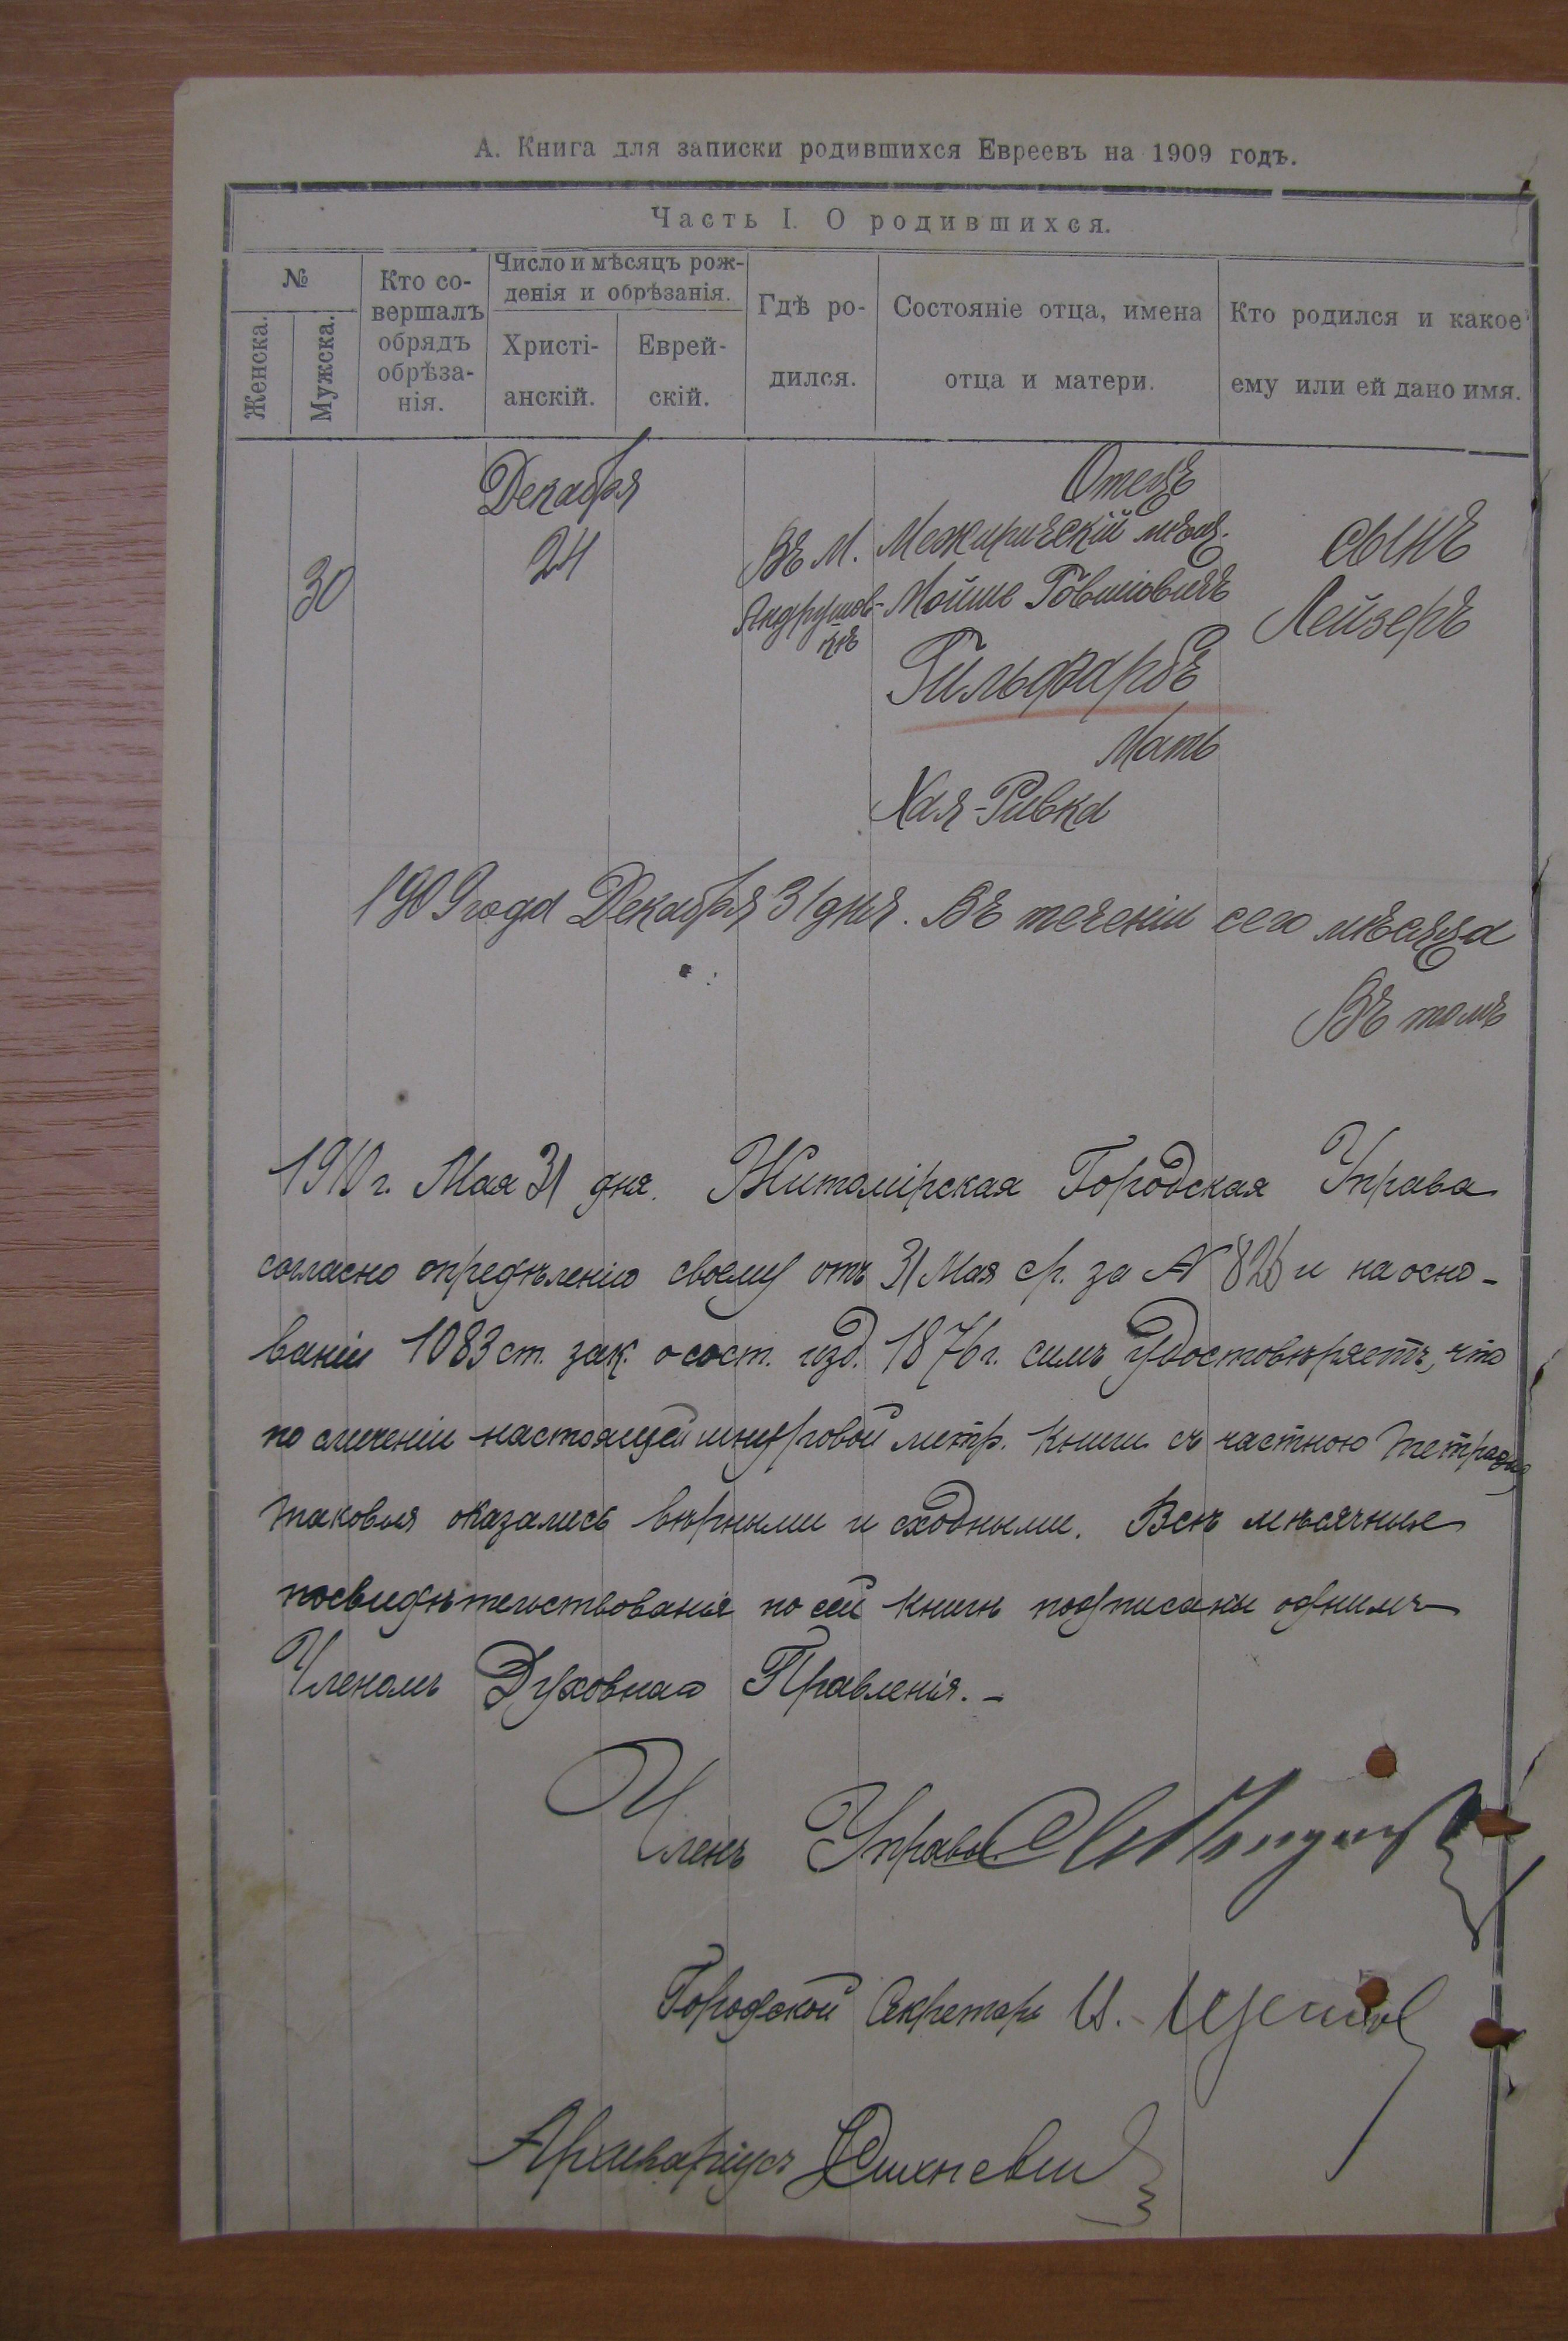 А. Книга для записки родившихся Евреевъ на 1909 годъ.
Часть I. О родившихся.
№
Женска.
Мужска.
Кто со-
вершалъ
обрядъ
обрѣза-
нія.
Число и мѣсяцъ рож-
денія и обрѣзанія.
Христі-
анскій.
Еврей-
скій.
Гдѣ ро-
дился.
Состояніе отца, имена
отца и матери.
Кто родился и какое
ему или ей дано имя.
30
Декабря
24
Въ М.
Андрушов-
кѣ
Отецъ
Межиричскій мѣщ.
Мойше Говшіовичъ
Гильфарбъ
Мать
Хая-Ривка
сынъ
Лейзеръ
1909 года Декабря 31 дня. Въ теченіи сего мѣсяца
Въ томъ
1910 г. Мая 31 дня. Житомірская Городская Управа
согласно опредѣленію своему отъ 31 Мая с/г. за № 826 и на осно-
ваніи 1083 ст. зак. о сост. изд. 1876 г. симъ удостовѣряетъ, что
по сличеніи настоящей шнуровой метр. книги съ частною тетрадью
таковыя оказались вѣрными и сходными. Всѣ мѣсячные
посвидѣтельствованія по сей книгѣ подписаны однимъ
Членомъ Духовнаго Правленія. –
Членъ Управы
Городской Секретарь И.
Архиваріусъ